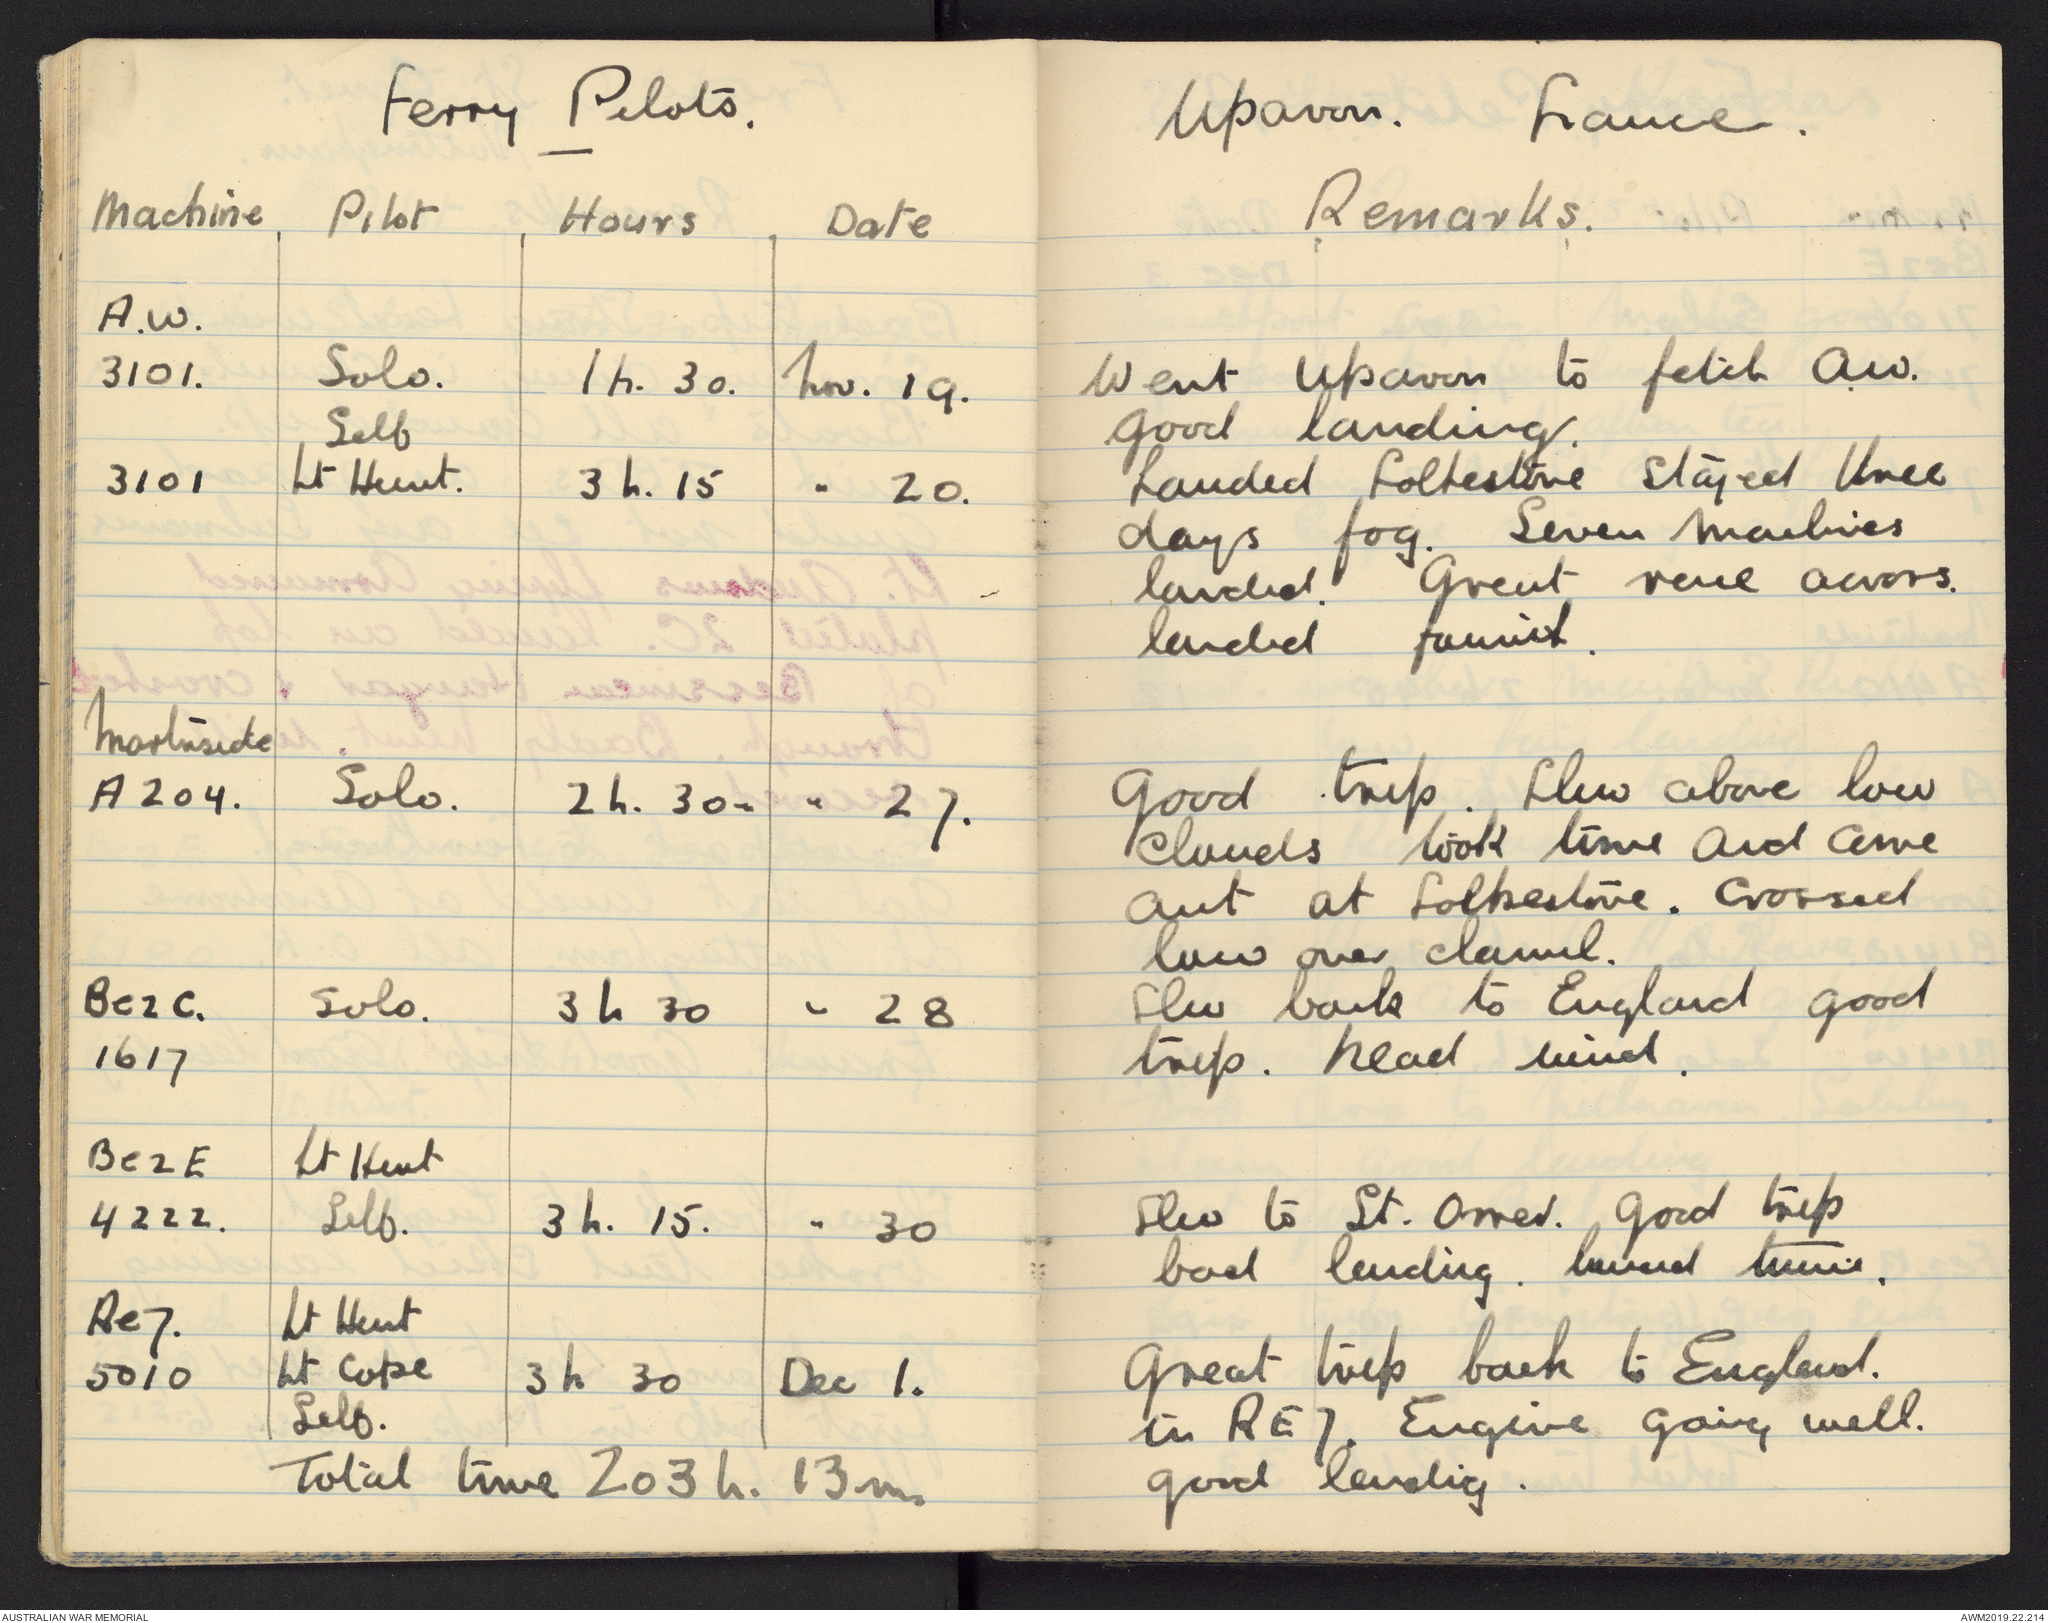 Ferry Pilots.
Machine Pilot Hours Date
A.W.
3101. Solo. 1h. 30. Nov. 19.
Self
3101 Lt Hunt. 3h. 15 " 20.
Martinside
A204. Solo. 2h. 30. " 27.
Be2c. Solo. 3h 30 " 28
1617
Be2E Lt Hunt
4222. Self. 3h. 15. " 30
Re7. Lt Hunt
5010 Lt Cope 3h 30 Dec 1.
Self.
Total time 203h. 13m.
Upavon. France.
Remarks.
Went Upavon to fetch A.W.
good landing.
Landed Folkestone stayed three
days fog. Seven machines
landed. Great race across.
landed
Good trip. Flew above low
clouds took time and came
out at Folkestone. Crossed
low over channel.
Flew back to England good
trip. head wind.
Flew to St. Omer. Good trip
bad landing.
Great trip back to England.
in RE7. Engine going well.
good landing.
AUSTRALIAN WAR MEMORIAL
AWM2019.22.214